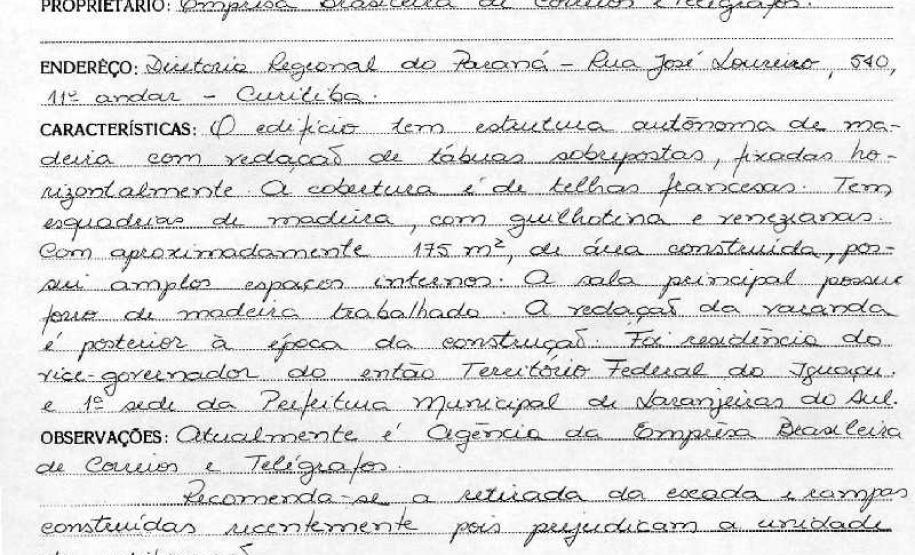 PROPRIETÁRIO: Empresa Brasileira de Correios e Telégrafos.
ENDERÊÇO: Diretoria Regional do Paraná - Rua José Loureiro, 540,
11º andar - Curitiba.
CARACTERÍSTICAS: O edifício tem estrutura autônoma de ma-
deira com vedação de tábuas sobrepostas, fixadas ho-
rizontalmente. A cobertura é de telhas francesas. Tem
esquadrias de madeira, com guilhotina e venezianas.
Com aproximadamente 175 m², de área construída, pos-
sui amplos espaços internos. A sala principal possue
forro de madeira trabalhado. A vedação da varanda
é posterior à época da construção. Foi residência do
vice-governador do então Território Federal do Iguaçu.
e 1ª sede da Prefeitura Municipal de Laranjeiras do Sul.
OBSERVAÇÕES: Atualmente é Agência da Emprêsa Brasileira
de Correios e Telégrafos.
Recomenda-se a retirada da escada e rampas
construídas recentemente pois prejudicam a unidade